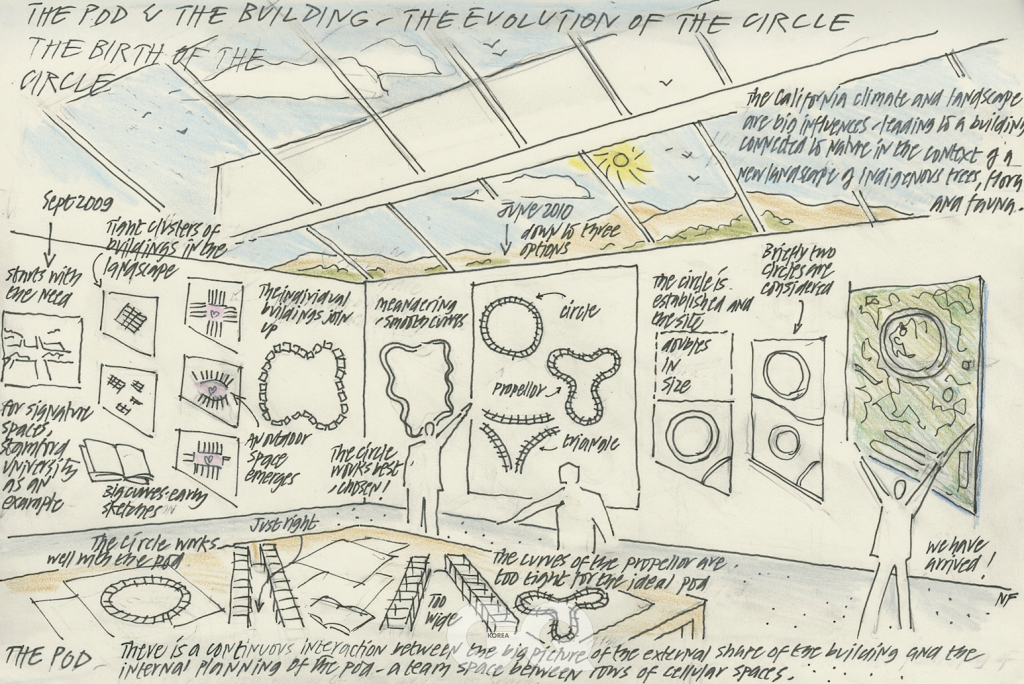 THE POD & THE BUILDING - THE EVOLUTION OF THE CIRCLE
THE BIRTH OF THE
CIRCLE
The California climate and landscape
are big influences - leading to a building
connected to nature in the context of a
new landscape of indigenous trees, flora
and fauna.
Sept 2009
starts with
the need
for signature
spaces,
Stamford
University
as an
example
Tight clusters of
buildings in the
landscape
Big curves - early
sketches
An outdoor
space
emerges
The individual
buildings join
up
meandering
- smooth curves
The circle
works best
, chosen!
June 2010
down to three
options
circle
propellor
triangle
The circle is
established and
the site
doubles
in
size
Briefly two
circles are
considered
we have
arrived!
NF
The circle works
well with the pod
Just right
Too
wide
The curves of the propellor are
too tight for the ideal pod
KOREA
THE POD - There is a continuous interaction between the big picture of the external share of the building and the
internal planning of the pod - a team space between rows of cellular spaces.